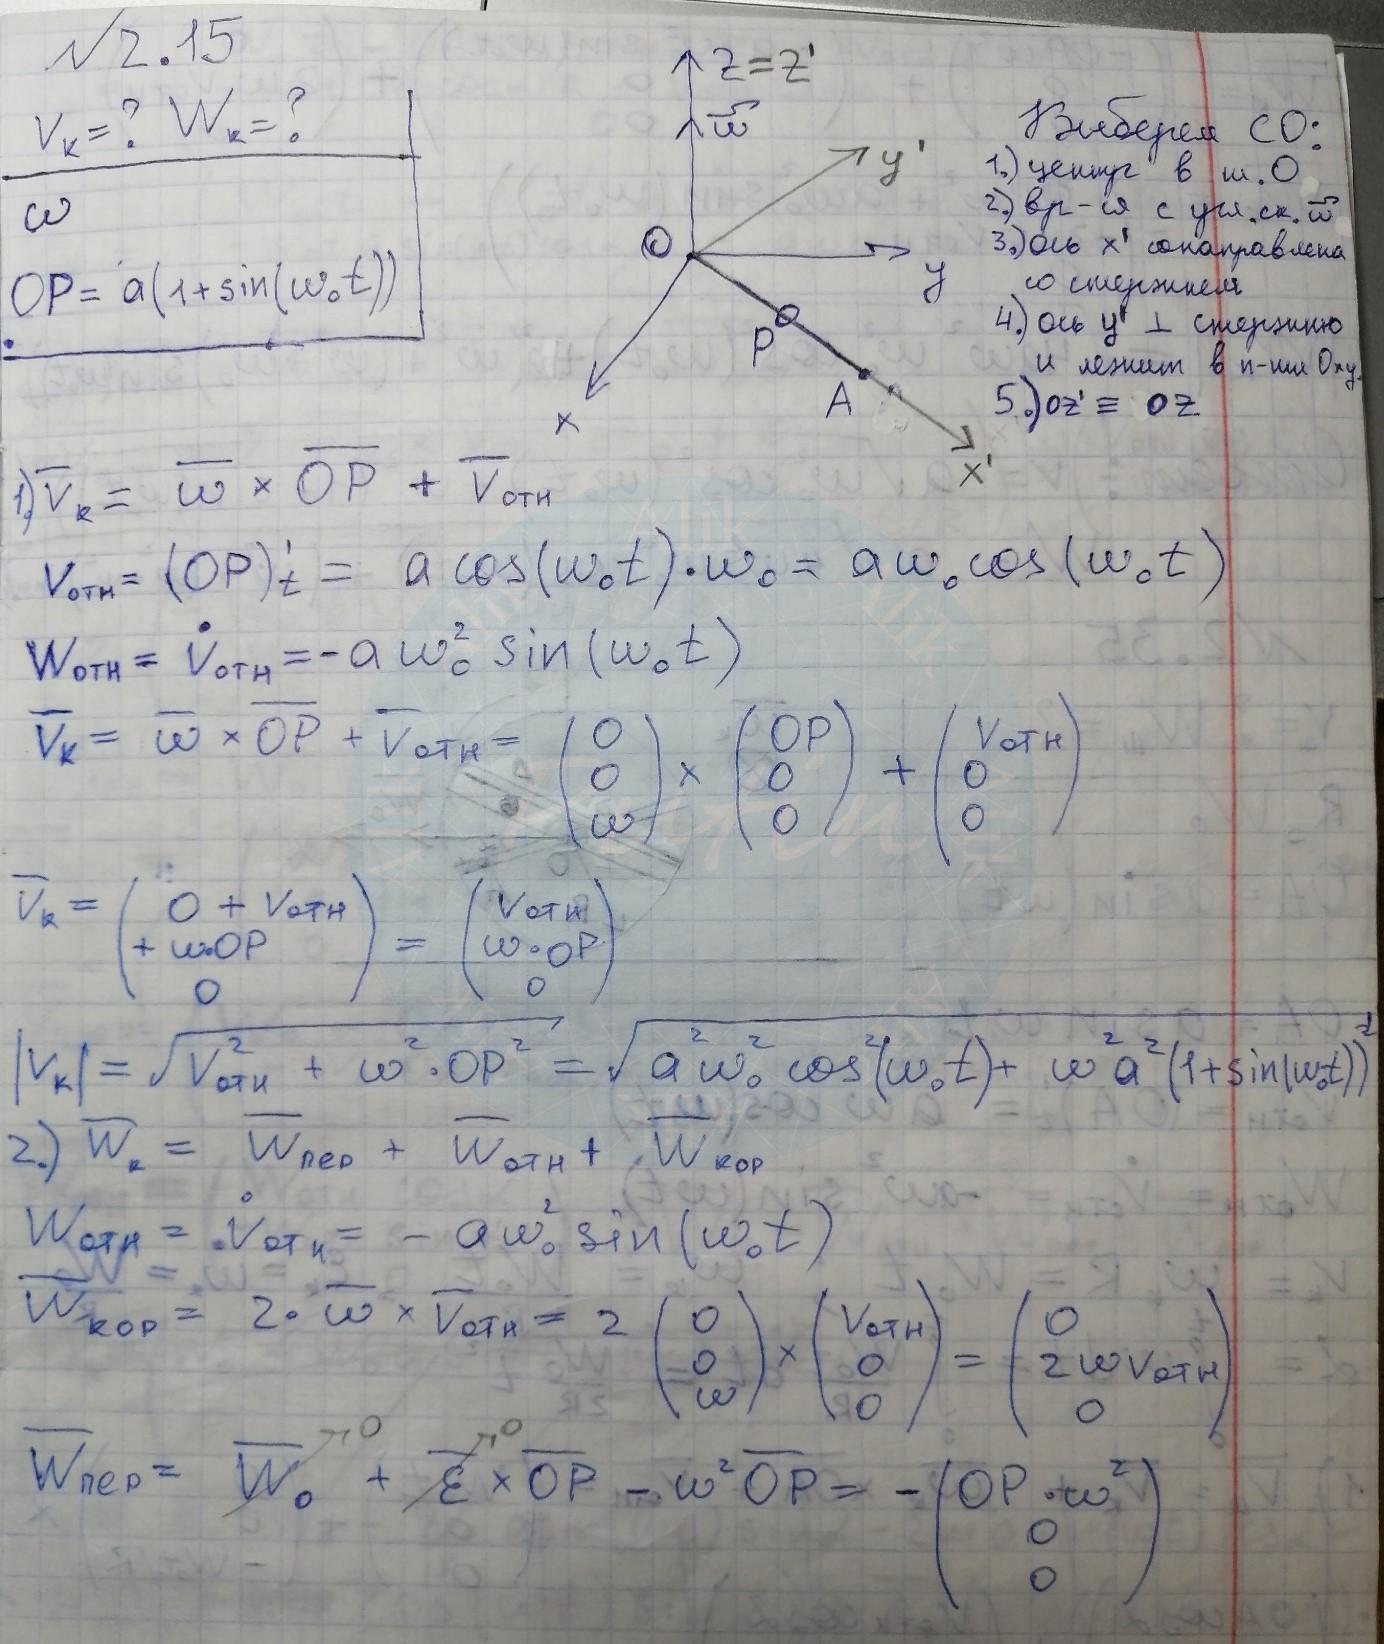 №2.15
V_к = ? W_к = ?
ω
OP = a(1+sin(ω₀t))
z = z'
ω⃗
y'
O
y
P
A
x
x'
Выберем СО:
1.) центр в т. О
2.) вр-ся с угл. ск. ω⃗
3.) ось x' сонаправлена
со стержнем
4.) ось y' ⊥ стержню
и лежит в п-ти Oxy
5.) oz' ≡ oz
1.) V̅_к = ω̅ × O̅P̅ + V̅_отн
V_отн = (OP)'_t = a cos(ω₀t)·ω₀ = aω₀cos(ω₀t)
W_отн = V̇_отн = -aω₀² sin(ω₀t)
V̅_к = ω̅ × O̅P̅ + V̅_отн = (0 0 ω) × (OP 0 0) + (V_отн 0 0)
V̅_к = (0 + V_отн + ω·OP 0) = (V_отн ω·OP 0)
|V_к| = √(V_отн² + ω²·OP²) = √(a²ω₀² cos²(ω₀t) + ω²a²(1+sin(ω₀t))²)
2.) W̅_к = W̅_пер + W̅_отн + W̅_кор
W_отн = V̇_отн = - aω₀² sin(ω₀t)
W̅_кор = 2·ω̅ × V̅_отн = 2 (0 0 ω) × (V_отн 0 0) = (0 2ωV_отн 0)
W̅_пер = W̅₀ →0 + ε̅ →0 × O̅P̅ - ω² O̅P̅ = -(OP·ω² 0 0)